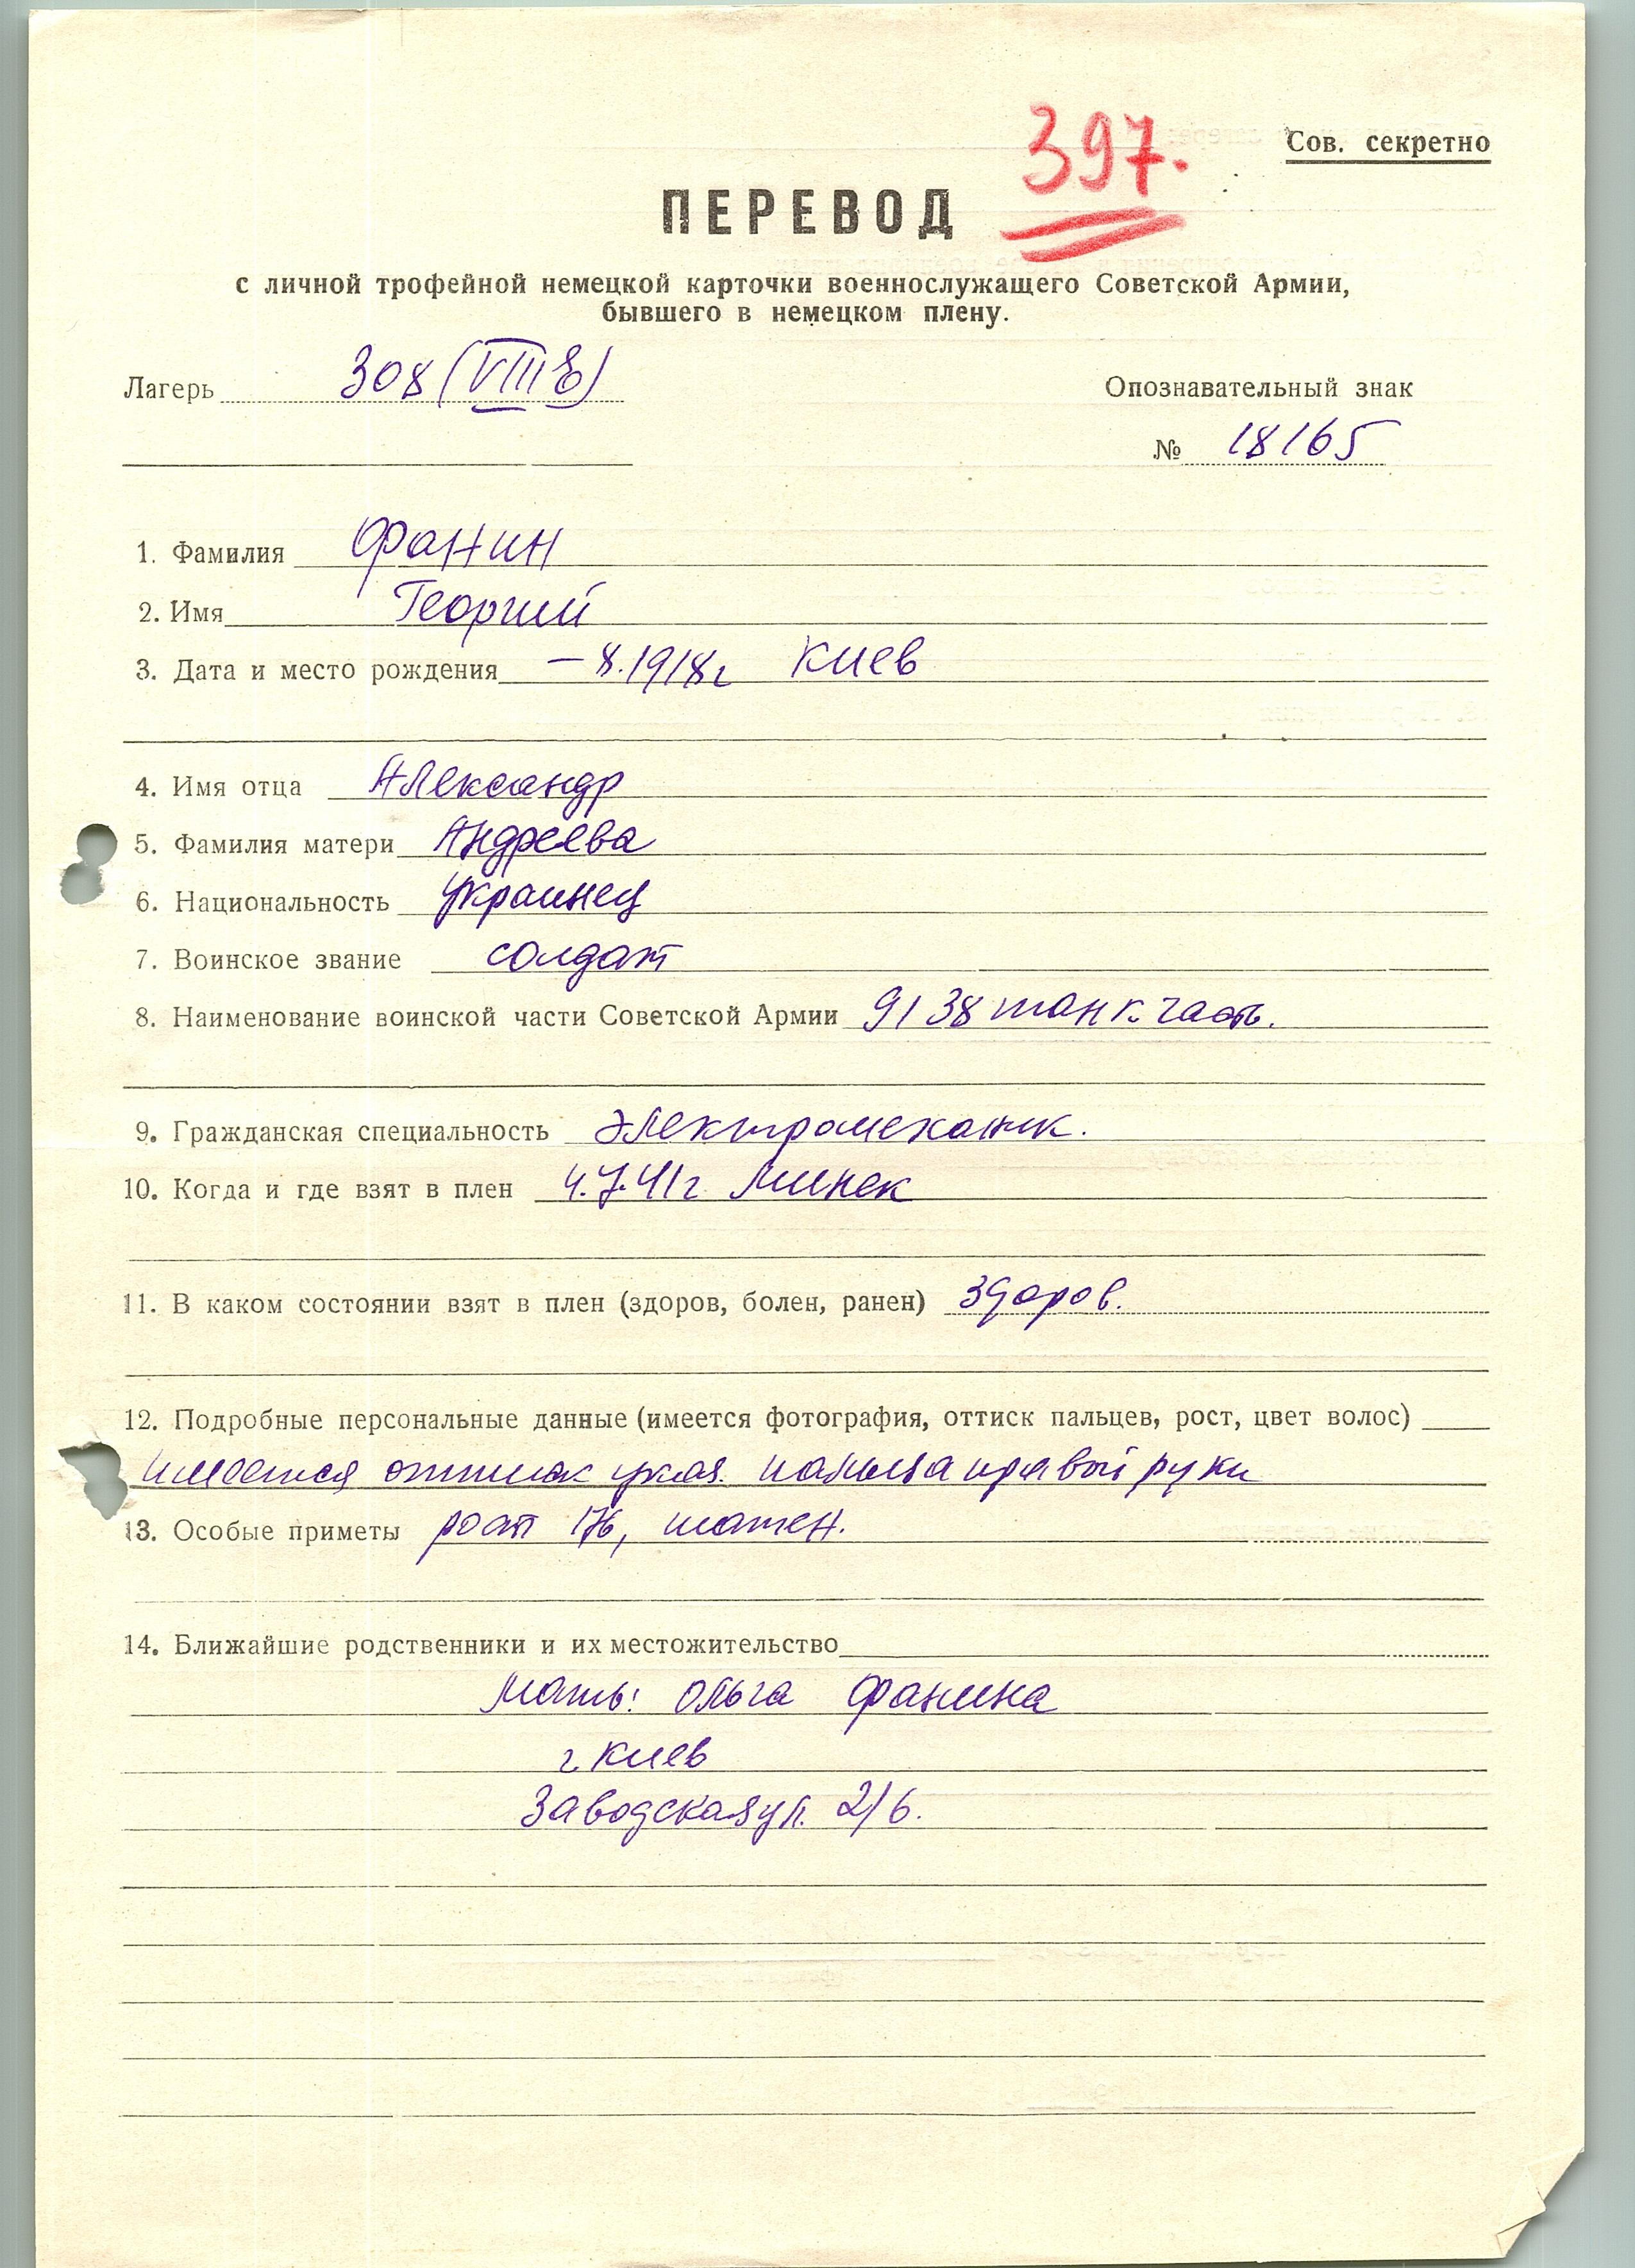 397.
Сов. секретно
ПЕРЕВОД
с личной трофейной немецкой карточки военнослужащего Советской Армии,
бывшего в немецком плену.
Лагерь 308 (VIII E)
Опознавательный знак
№ 18165
1. Фамилия Фанин
2. Имя Георгий
3. Дата и место рождения – 8.1918г Киев
4. Имя отца Александр
5. Фамилия матери Андреева
6. Национальность Украинец
7. Воинское звание солдат
8. Наименование воинской части Советской Армии 9138 танк. часть.
9. Гражданская специальность Электромеханик.
10. Когда и где взят в плен 4.7.41г Минск
11. В каком состоянии взят в плен (здоров, болен, ранен) Здоров.
12. Подробные персональные данные (имеется фотография, оттиск пальцев, рост, цвет волос)
имеется оттиск указ. пальца правой руки
13. Особые приметы рост 176, шатен.
14. Ближайшие родственники и их местожительство
Мать: Ольга Фанина
г. Киев
Заводская ул. 2/6.